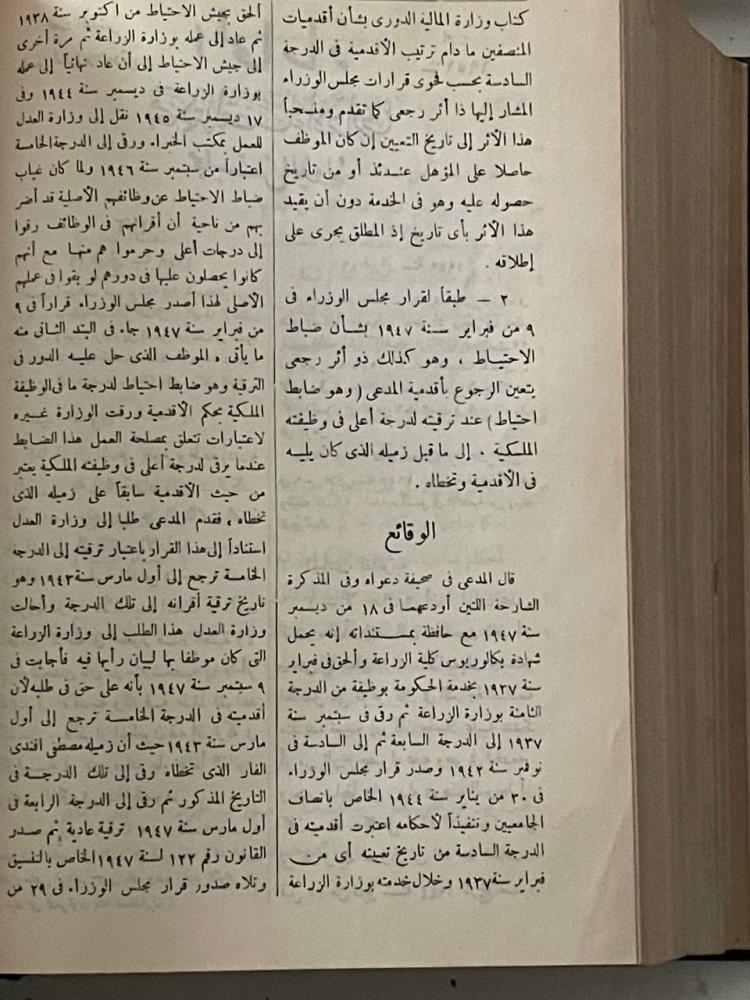 كتاب وزارة المالية الدورى بشأن أقدميات
المنصفين ما دام ترتيب الأقدمية فى الدرجة
السادسة بحسب فحوى قرارات مجلس الوزراء
المشار إليها ذا أثر رجعى كما تقدم ومنسحباً
هذا الأثر إلى تاريخ التعيين إن كان الموظف
حاصلا على المؤهل عندئذ أو من تاريخ
حصوله عليه وهو فى الخدمة دون أن يقيد
هذا الأثر بأى تاريخ إذ المطلق يجرى على
إطلاقه .
٢ — طبقاً لقرار مجلس الوزراء فى
٩ من فبراير سنة ١٩٤٧ بشأن ضباط
الاحتياط ، وهو كذلك ذو أثر رجعى
يتعين الرجوع بأقدمية المدعى ( وهو ضابط
احتياط ) عند ترقيته لدرجة أعلى فى وظيفته
الملكية . إلى ما قبل زميله الذى كان يليه
فى الأقدمية وتخطاه .
الوقائع
قال المدعى فى صحيفة دعواه وفى المذكرة
الشارحة اللتين أودعهما فى ١٨ من ديسمبر
سنة ١٩٤٧ مع حافظة بمستنداته إنه يحمل
شهادة بكالوريوس كلية الزراعة وألحق فى فبراير
سنة ١٩٣٧ بخدمة الحكومة بوظيفة من الدرجة
الثامنة بوزارة الزراعة ثم رقى فى سبتمبر سنة
١٩٣٧ إلى الدرجة السابعة ثم إلى السادسة فى
نوفمبر سنة ١٩٤٢ وصدر قرار مجلس الوزراء
فى ٣٠ من يناير سنة ١٩٤٤ الخاص بانصاف
الجامعيين وتنفيذاً لأحكامه اعتبرت أقدميته فى
الدرجة السادسة من تاريخ تعيينه أى من
فبراير سنة ١٩٣٧ وخلال خدمته بوزارة الزراعة
ألحق بجيش الاحتياط من اكتوبر سنة ١٩٣٨
ثم عاد إلى عمله بوزارة الزراعة ثم مرة أخرى
إلى جيش الاحتياط إلى أن عاد نهائياً إلى عمله
بوزارة الزراعة فى ديسمبر سنة ١٩٤٤ وفى
١٧ ديسمبر سنة ١٩٤٥ نقل إلى وزارة العدل
للعمل بمكتب الخبراء ورقى إلى الدرجة الخامسة
اعتباراً من سبتمبر سنة ١٩٤٦ ولما كان غياب
ضباط الاحتياط عن وظائفهم الأصلية قد أضر
بهم من ناحية أن أقرانهم فى الوظائف رقوا
إلى درجات أعلى وحرموا هم منها مع أنهم
كانوا يحصلون عليها فى دورهم لو بقوا فى عملهم
الأصلى لهذا أصدر مجلس الوزراء قراراً فى ٩
من فبراير سنة ١٩٤٧ جاء فى البند الثانى منه
ما يأتى « الموظف الذى حل عليه الدور فى
الترقية وهو ضابط احتياط لدرجة ما فى الوظيفة
الملكية بحكم الأقدمية ورقت الوزارة غيره
لاعتبارات تتعلق بمصلحة العمل هذا الضابط
عندما يرقى لدرجة أعلى فى وظيفته الملكية يعتبر
من حيث الأقدمية سابقاً على زميله الذى
تخطاه » فقدم المدعى طلبا إلى وزارة العدل
استناداً إلى هذا القرار باعتبار ترقيته إلى الدرجة
الخامسة ترجع إلى أول مارس سنة ١٩٤٣ وهو
تاريخ ترقية أقرانه إلى تلك الدرجة وأحالت
وزارة العدل هذا الطلب إلى وزارة الزراعة
التى كان موظفا بها لبيان رأيها فيه فأجابت فى
٩ سبتمبر سنة ١٩٤٧ بأنه على حق فى طلبه لأن
أقدميته فى الدرجة الخامسة ترجع إلى أول
مارس سنة ١٩٤٣ حيث أن زميله مصطفى افندى
الفار الذى تخطاه رقى إلى تلك الدرجة فى
التاريخ المذكور ثم رقى إلى الدرجة الرابعة فى
أول مارس سنة ١٩٤٧ ترقية عادية ثم صدر
القانون رقم ١٢٢ لسنة ١٩٤٧ الخاص بالتنسيق
وتلاه صدور قرار مجلس الوزراء فى ٢٩ من